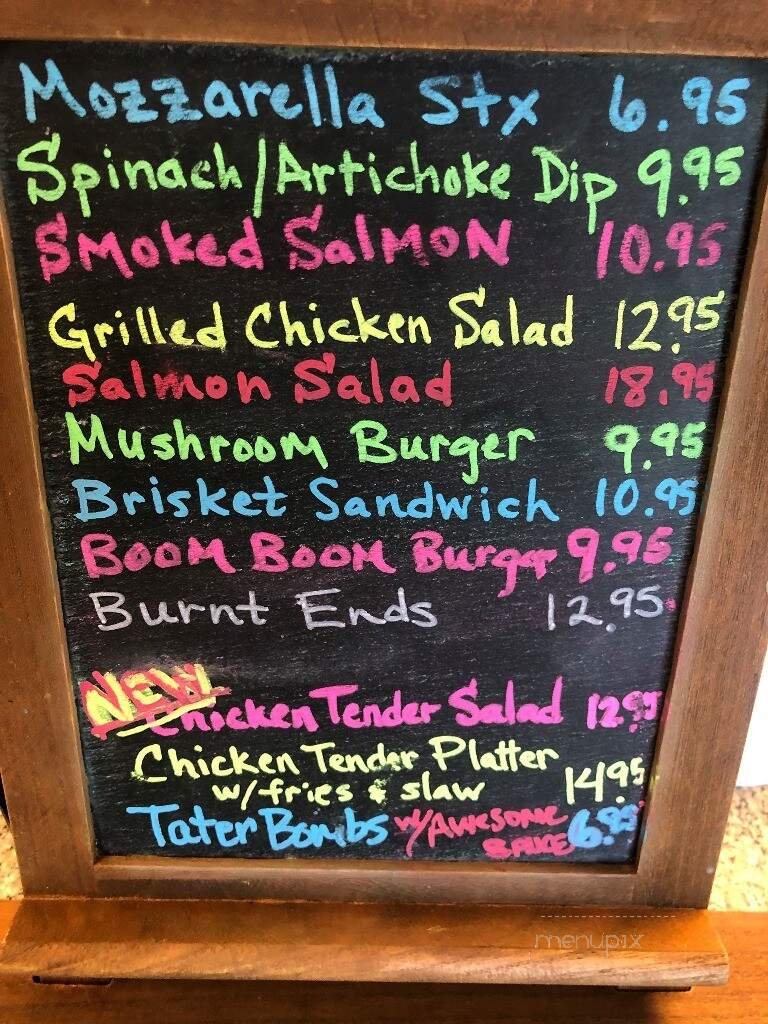 Mozzarella Stx 6.95
Spinach/Artichoke Dip 9.95
Smoked Salmon 10.95
Grilled Chicken Salad 12.95
Salmon Salad 18.95
Mushroom Burger 9.95
Brisket Sandwich 10.95
Boom Boom Burger 9.95
Burnt Ends 12.95
NEW
Chicken Tender Salad 12.95
Chicken Tender Platter
w/fries & slaw 14.95
Tater Bombs w/Awesome 6.95
sauce
menupix